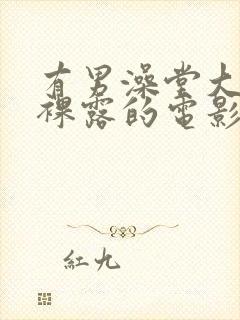 有男澡堂大
裸露的電影
紅九